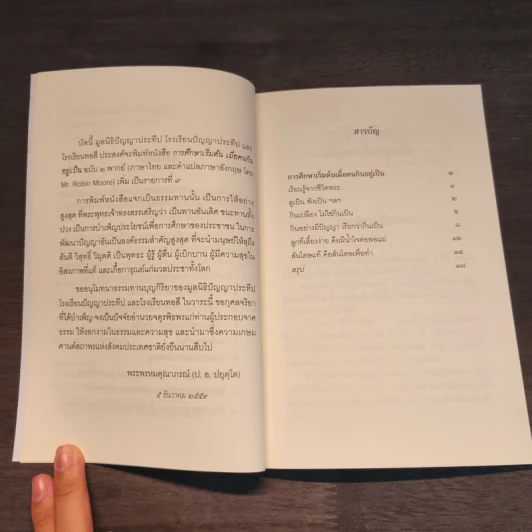 บัดนี้ มูลนิธิปัญญาประทีป โรงเรียนปัญญาประทีป และ
โรงเรียนทอสี ประสงค์จะพิมพ์หนังสือ การศึกษาเริ่มต้น เมื่อคนกิน
อยู่เป็น ฉบับ ๒ พากย์ (ภาษาไทย และคำแปลภาษาอังกฤษ โดย
Mr. Robin Moore) เพิ่ม เป็นรายการที่ ๙
การพิมพ์หนังสือแจกเป็นธรรมทานนั้น เป็นการให้อย่าง
สูงสุด ที่พระพุทธเจ้าทรงสรรเสริญว่า เป็นทานอันเลิศ ชนะทานทั้ง
ปวง เป็นการบำเพ็ญประโยชน์เพื่อการศึกษาของประชาชน ในการ
พัฒนาปัญญาอันเป็นองค์ธรรมสำคัญสูงสุด ที่จะนำมนุษย์ให้ลุถึง
สันติ วิสุทธิ์ วิมุตติ เป็นพุทธะ ผู้รู้ ผู้ตื่น ผู้เบิกบาน ผู้มีความสุขใน
อิสรภาพที่แท้ และเกื้อการุณย์แก่มวลประชาทั้งโลก
ขออนุโมทนาธรรมทานบุญกิริยาของมูลนิธิปัญญาประทีป
โรงเรียนปัญญาประทีป และโรงเรียนทอสี ในวาระนี้ ขอกุศลจริยา
ที่ได้บำเพ็ญ จงเป็นปัจจัยอำนวยจตุรพิธพรแก่ท่านผู้ประกอบจาค
ธรรม ให้งอกงามในธรรมและความสุข และนำมาซึ่งความเกษม
ศานต์สถาพรแห่งสังคมประเทศชาติยั่งยืนนานสืบไป
พระพรหมคุณาภรณ์ (ป. อ. ปยุตฺโต)
๕ ธันวาคม ๒๕๕๙
สารบัญ
การศึกษาเริ่มต้นเมื่อคนกินอยู่เป็น ๑
เรียนรู้จากชีวิตพระ ๑
ดูเป็น ฟังเป็น ฯลฯ ๒
กินเปลือง ไม่ใช่กินเป็น ๕
กินอย่างมีปัญญา เรียกว่ากินเป็น ๘
ลูกที่เลี้ยงง่าย คือมีน้ำใจต่อพ่อแม่ ๑๒
สันโดษแท้ คือสันโดษเพื่อทำ ๑๔
สรุป ๑๗